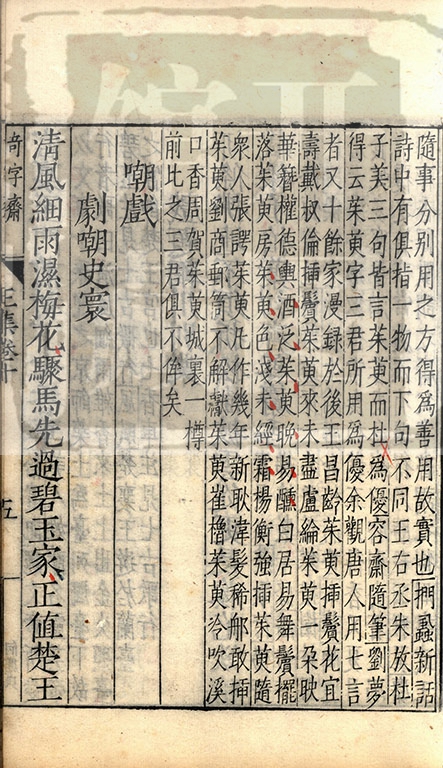 隨事分別用之方得為善用故實也捫蝨新話
詩中有俱指一物而下句不同王右丞朱放杜
子美三句皆言茱萸而杜為優容齋隨筆劉夢
得云茱萸字三君所用為優余觀唐人用七言
者又十餘家漫録於後王昌齡茱萸揷鬢花宜
壽戴叔倫揷鬢茱萸來未盡盧綸茱萸一朶映
華簪權德輿酒泛茱萸晚易醺白居易舞鬟擺
落茱萸房茱萸色淺未經霜楊衡強揷茱萸隨
衆人張諤茱萸凡作幾年新耿湋髮稀郍敢揷
茱萸劉商郵筩不解獻茱萸崔櫓茱萸冷吹溪
口香周賀茱萸城裏一樽
前比之三君俱不侔矣
嘲戲
劇嘲史寰
清風細雨濕梅花驟馬先過碧玉家正值楚王
奇字齋
王集卷十
五